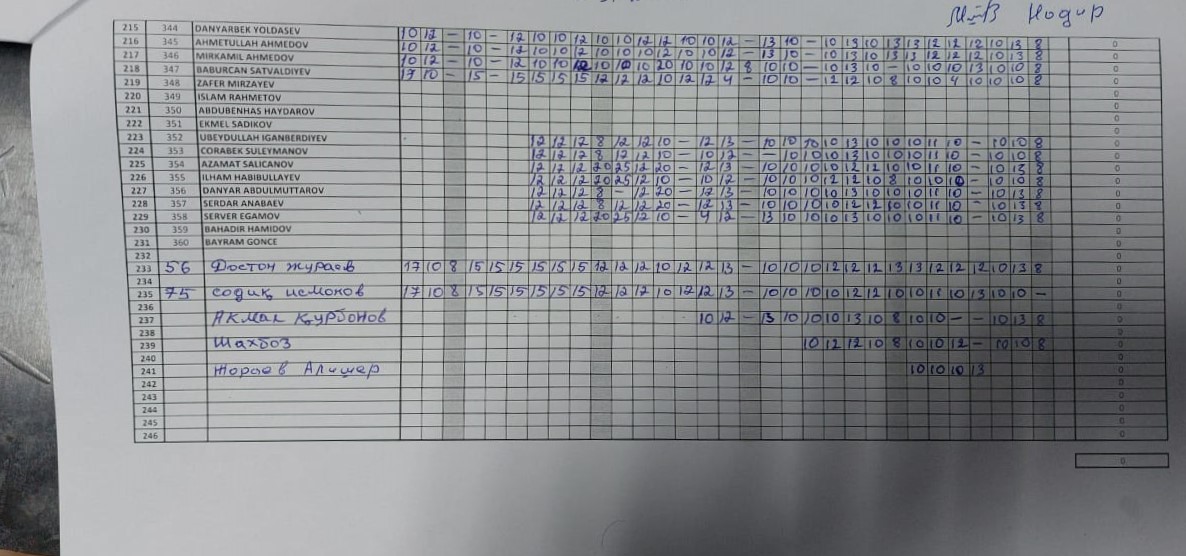 Нодир
215 344 DANYARBEK YOLDASEV 10 12 – 10 – 12 10 10 12 10 10 12 12 10 10 12 – 13 10 – 10 13 10 13 13 12 12 12 10 13 8 0
216 345 AHMETULLAH AHMEDOV 10 12 – 10 – 12 10 10 12 10 10 10 12 10 10 12 – 13 10 – 10 13 10 13 13 12 12 12 10 13 8 0
217 346 MIRKAMIL AHMEDOV 10 12 – 10 – 12 10 10 12 10 10 10 20 10 10 12 8 10 10 – 10 13 10 – 10 10 10 13 10 10 8 0
218 347 BABURCAN SATVALDIYEV 17 10 – 15 – 15 15 15 15 12 12 12 10 12 12 4 – 10 10 – 12 12 10 8 10 10 4 10 10 10 8 0
219 348 ZAFER MIRZAYEV 0
220 349 ISLAM RAHMETOV 0
221 350 ABDUBENHAS HAYDAROV 0
222 351 EKMEL SADIKOV 0
223 352 UBEYDULLAH IGANBERDIYEV 12 12 12 8 12 12 10 – 12 13 – 10 10 10 10 13 10 10 10 11 10 – 10 10 8 0
224 353 CORABEK SULEYMANOV 12 12 12 8 12 12 10 – 10 12 – – 10 10 10 13 10 10 10 11 10 – 10 10 8 0
225 354 AZAMAT SALICANOV 12 12 12 20 25 12 20 – 12 13 – 10 10 10 10 12 12 10 10 11 10 – 10 13 8 0
226 355 ILHAM HABIBULLAYEV 12 12 12 20 25 12 10 – 10 12 – 10 10 10 12 12 10 8 10 10 10 – 10 10 8 0
227 356 DANYAR ABDULMUTTAROV 12 12 12 8 – 12 20 – 12 13 – 10 10 10 10 13 10 10 10 11 10 – 10 13 8 0
228 357 SERDAR ANABAEV 12 12 12 8 12 12 20 – 12 13 – 10 10 10 10 12 12 10 10 11 10 – 10 13 8 0
229 358 SERVER EGAMOV 12 12 12 20 25 12 10 – 4 12 – 13 10 10 10 13 10 10 10 11 10 – 10 13 8 0
230 359 BAHADIR HAMIDOV 0
231 360 BAYRAM GONCE 0
232 0
233 56 Достон жураев 17 10 8 15 15 15 15 15 15 12 12 12 10 12 12 13 – 10 10 10 12 12 12 13 13 12 12 12 10 13 8 0
234 0
235 75 содиқ исмонов 17 10 8 15 15 15 15 15 15 12 12 12 10 12 12 13 – 10 10 10 10 12 12 10 10 11 10 13 10 10 – 0
236 0
237 Акмал Қурбонов 10 12 – 13 10 10 10 13 10 8 10 10 – – 10 13 8 0
238 0
239 Шахбоз 10 12 12 10 8 10 10 12 – 10 10 8 0
240 0
241 Жораев Алишер 10 10 10 13 0
242 0
243 0
244 0
245 0
246 0
0